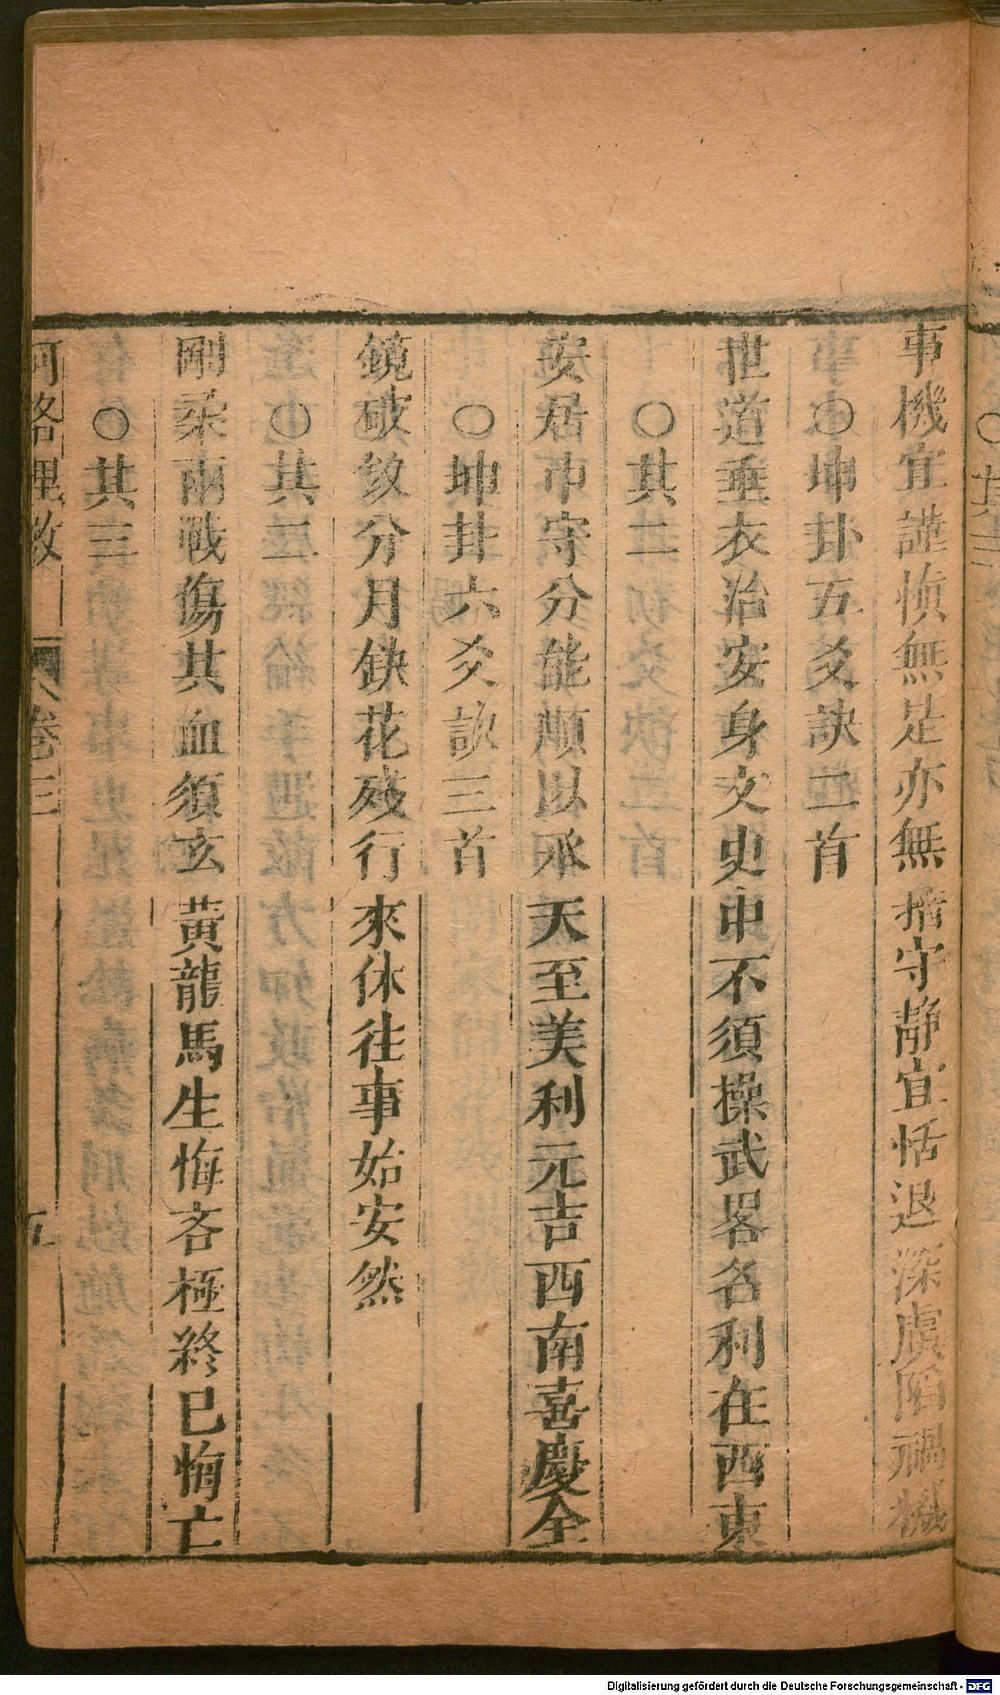 事機宜謹慎無足亦無揩守靜宜恬退深虞陷禍機
○坤卦五爻訣二首
世道垂衣治安身文史中不須操武畧名利在西東
○其二
安居中守分能順以承天至美利元吉西南喜慶全
○坤卦六爻訣三首
鏡破釵分月缺花殘行來休往事始安然
○其二
剛柔兩戰傷其血須玄黃龍馬生悔吝極終已悔亡
○其三
河洛理數 卷三 五
Digitalisierung gefördert durch die Deutsche Forschungsgemeinschaft - DFG